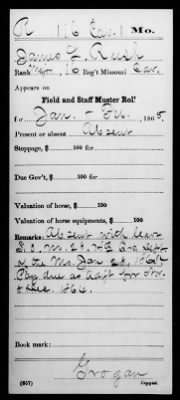 R 16 Cav. Mo.
James L. Rush
Rank Major, 16 Reg't Missouri Cav.
Appears on
Field and Staff Muster Roll
for Jan. - Feb., 1865.
Present or absent Absent
Stoppage, $ 100 for
Due Gov't, $ 100 for
Valuation of horse, $ 100
Valuation of horse equipments, $ 100
Remarks: Absent with leave
S.O. No.
of the Mo. Jan
Pay due as Capt for Nov.
& Dec. 1864.
Book mark:
Grogan
(857) Copyist.